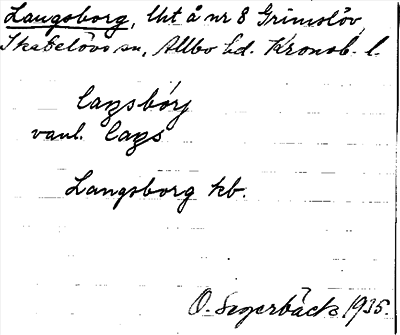 Langsborg, lht å nr 8 Grimslöv
Skatelövs sn, Allbo hd. Kronob. l.
laŋsbórj
vanl. laŋs
Langsborg kb.
O. Segerbäck 1935.